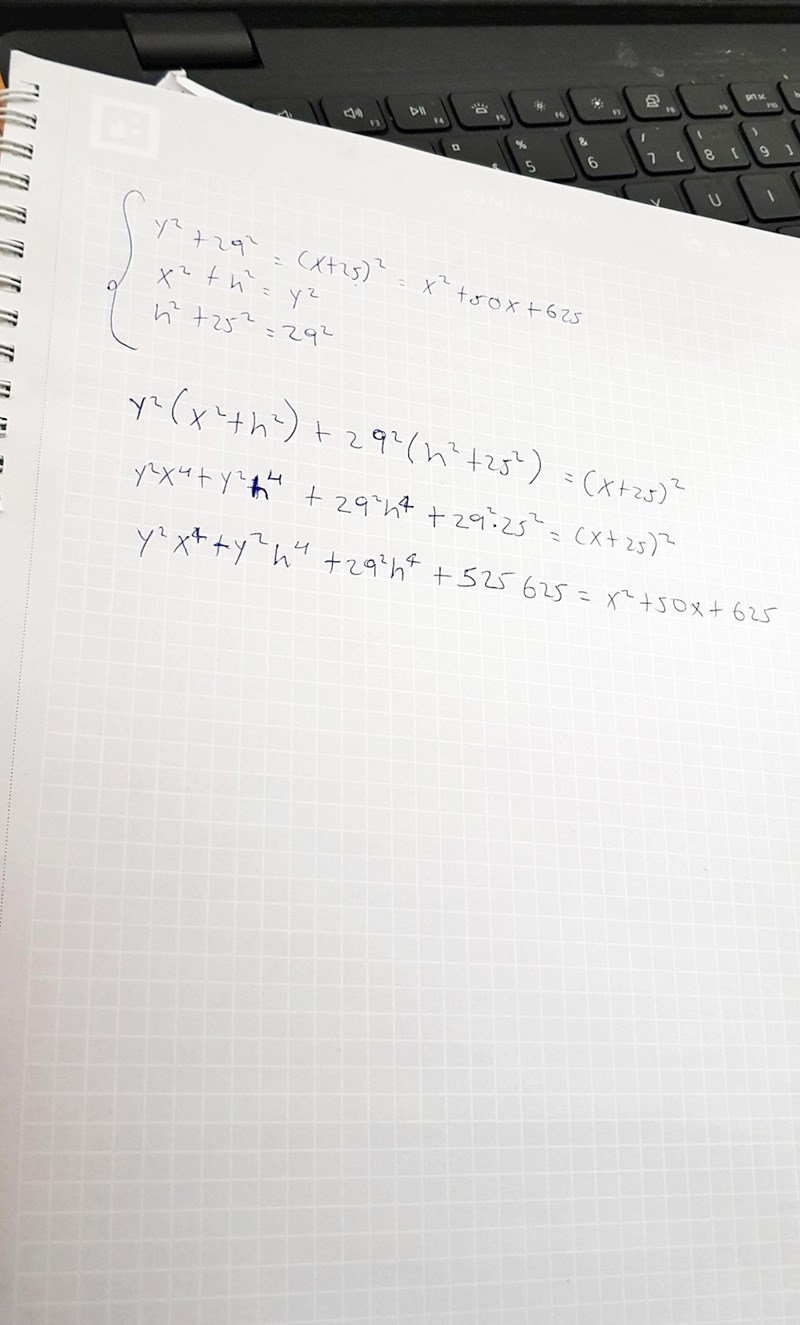 y² + 29² = (x+25)² = x² + 50x + 625
x² + h² = y²
h² + 25² = 29²
y²(x²+h²) + 29²(h²+25²) = (x+25)²
y²x⁴ + y²h⁴ + 29²h⁴ + 29²·25² = (x+25)²
y²x⁴ + y²h⁴ + 29²h⁴ + 525 625 = x² + 50x + 625
F3 F4 F5 F6 F7 F8 F9 prt sc F10
% 5 & 6 / 7 { ( 8 [ ) 9 ]
Y U I